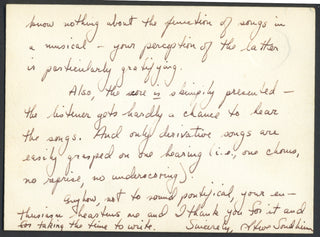 know nothing about the function of songs in
a musical — your perception of the latter
is particularly gratifying.
Also, the score is skimpily presented —
the listener gets hardly a chance to hear
the songs. And only derivative songs are
easily grasped on one hearing (i.e., one chorus,
no reprise, no underscoring).
Anyhow, not to sound pontifical, your en-
thusiasm heartens me and I thank you for it and
for taking the time to write. Sincerely, Steve Sondheim